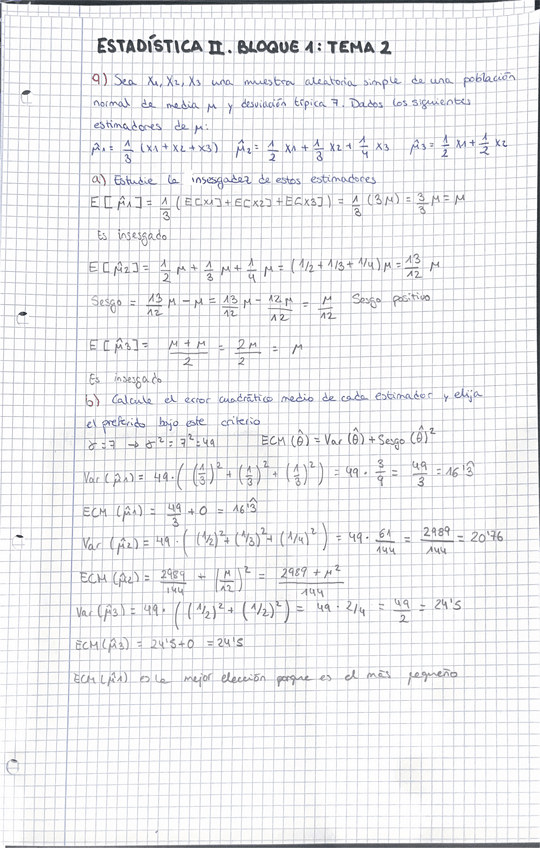 ESTADÍSTICA II. BLOQUE 1: TEMA 2
9) Sea X1, X2, X3 una muestra aleatoria simple de una población
normal de media μ y desviación típica 7. Dados los siguientes
estimadores de μ:
μ̂1 = 1/3 (x1 + x2 + x3) μ̂2 = 1/2 x1 + 1/3 x2 + 1/4 x3 μ̂3 = 1/2 x1 + 1/2 x2
a) Estudie la insesgadez de estos estimadores
E[μ̂1] = 1/3 (E[x1] + E[x2] + E[x3]) = 1/3 (3μ) = 3/3 μ = μ
Es insesgado
E[μ̂2] = 1/2 μ + 1/3 μ + 1/4 μ = (1/2 + 1/3 + 1/4) μ = 13/12 μ
Sesgo = 13/12 μ - μ = 13/12 μ - 12μ/12 = μ/12 Sesgo positivo
E[μ̂3] = μ + μ/2 = 2μ/2 = μ
Es insesgado
b) Calcule el error cuadrático medio de cada estimador y elija
el preferido bajo este criterio
σ = 7 → σ² = 7² = 49 ECM (θ̂) = Var (θ̂) + Sesgo (θ̂)²
Var (μ̂1) = 49 · ((1/3)² + (1/3)² + (1/3)²) = 49 · 3/9 = 49/3 = 16'3̂
ECM (μ̂1) = 49/3 + 0 = 16'3̂
Var (μ̂2) = 49 · ((1/2)² + (1/3)² + (1/4)²) = 49 · 61/144 = 2989/144 = 20'76
ECM (μ̂2) = 2989/144 + (μ/12)² = 2989 + μ²/144
Var (μ̂3) = 49 · ((1/2)² + (1/2)²) = 49 · 2/4 = 49/2 = 24'5
ECM (μ̂3) = 24'5 + 0 = 24'5
ECM (μ̂1) es la mejor elección porque es el más pequeño